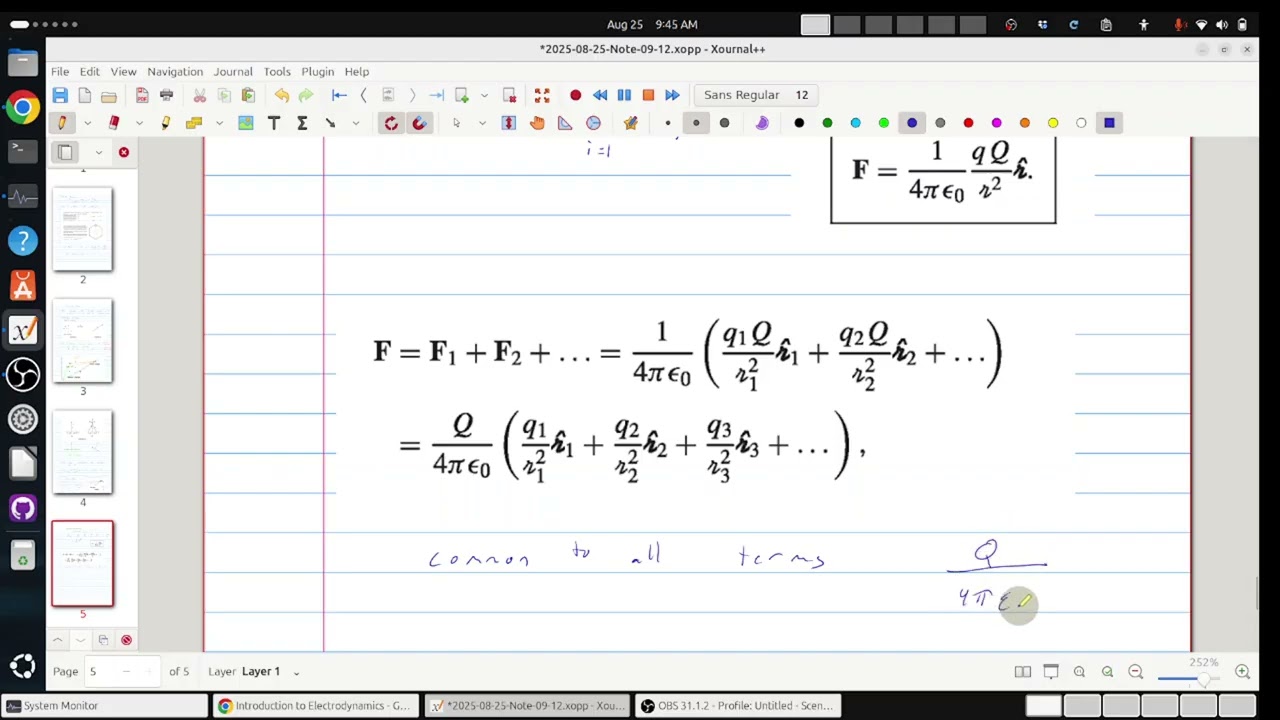 Aug 25 9:45 AM
*2025-08-25-Note-09-12.xopp - Xournal++
File Edit View Navigation Journal Tools Plugin Help
Sans Regular 12
i=1
F = 1/4πϵ₀ qQ/𝓇² 𝓇̂.
F = F₁ + F₂ + … = 1/4πϵ₀ (q₁Q/𝓇₁² 𝓇̂₁ + q₂Q/𝓇₂² 𝓇̂₂ + …)
= Q/4πϵ₀ (q₁/𝓇₁² 𝓇̂₁ + q₂/𝓇₂² 𝓇̂₂ + q₃/𝓇₃² 𝓇̂₃ + …),
common to all terms Q
4π ε
2
3
4
5
Page 5 of 5 Layer Layer 1
252%
System Monitor
Introduction to Electrodynamics - G...
*2025-08-25-Note-09-12.xopp - Xou...
OBS 31.1.2 - Profile: Untitled - Scen...